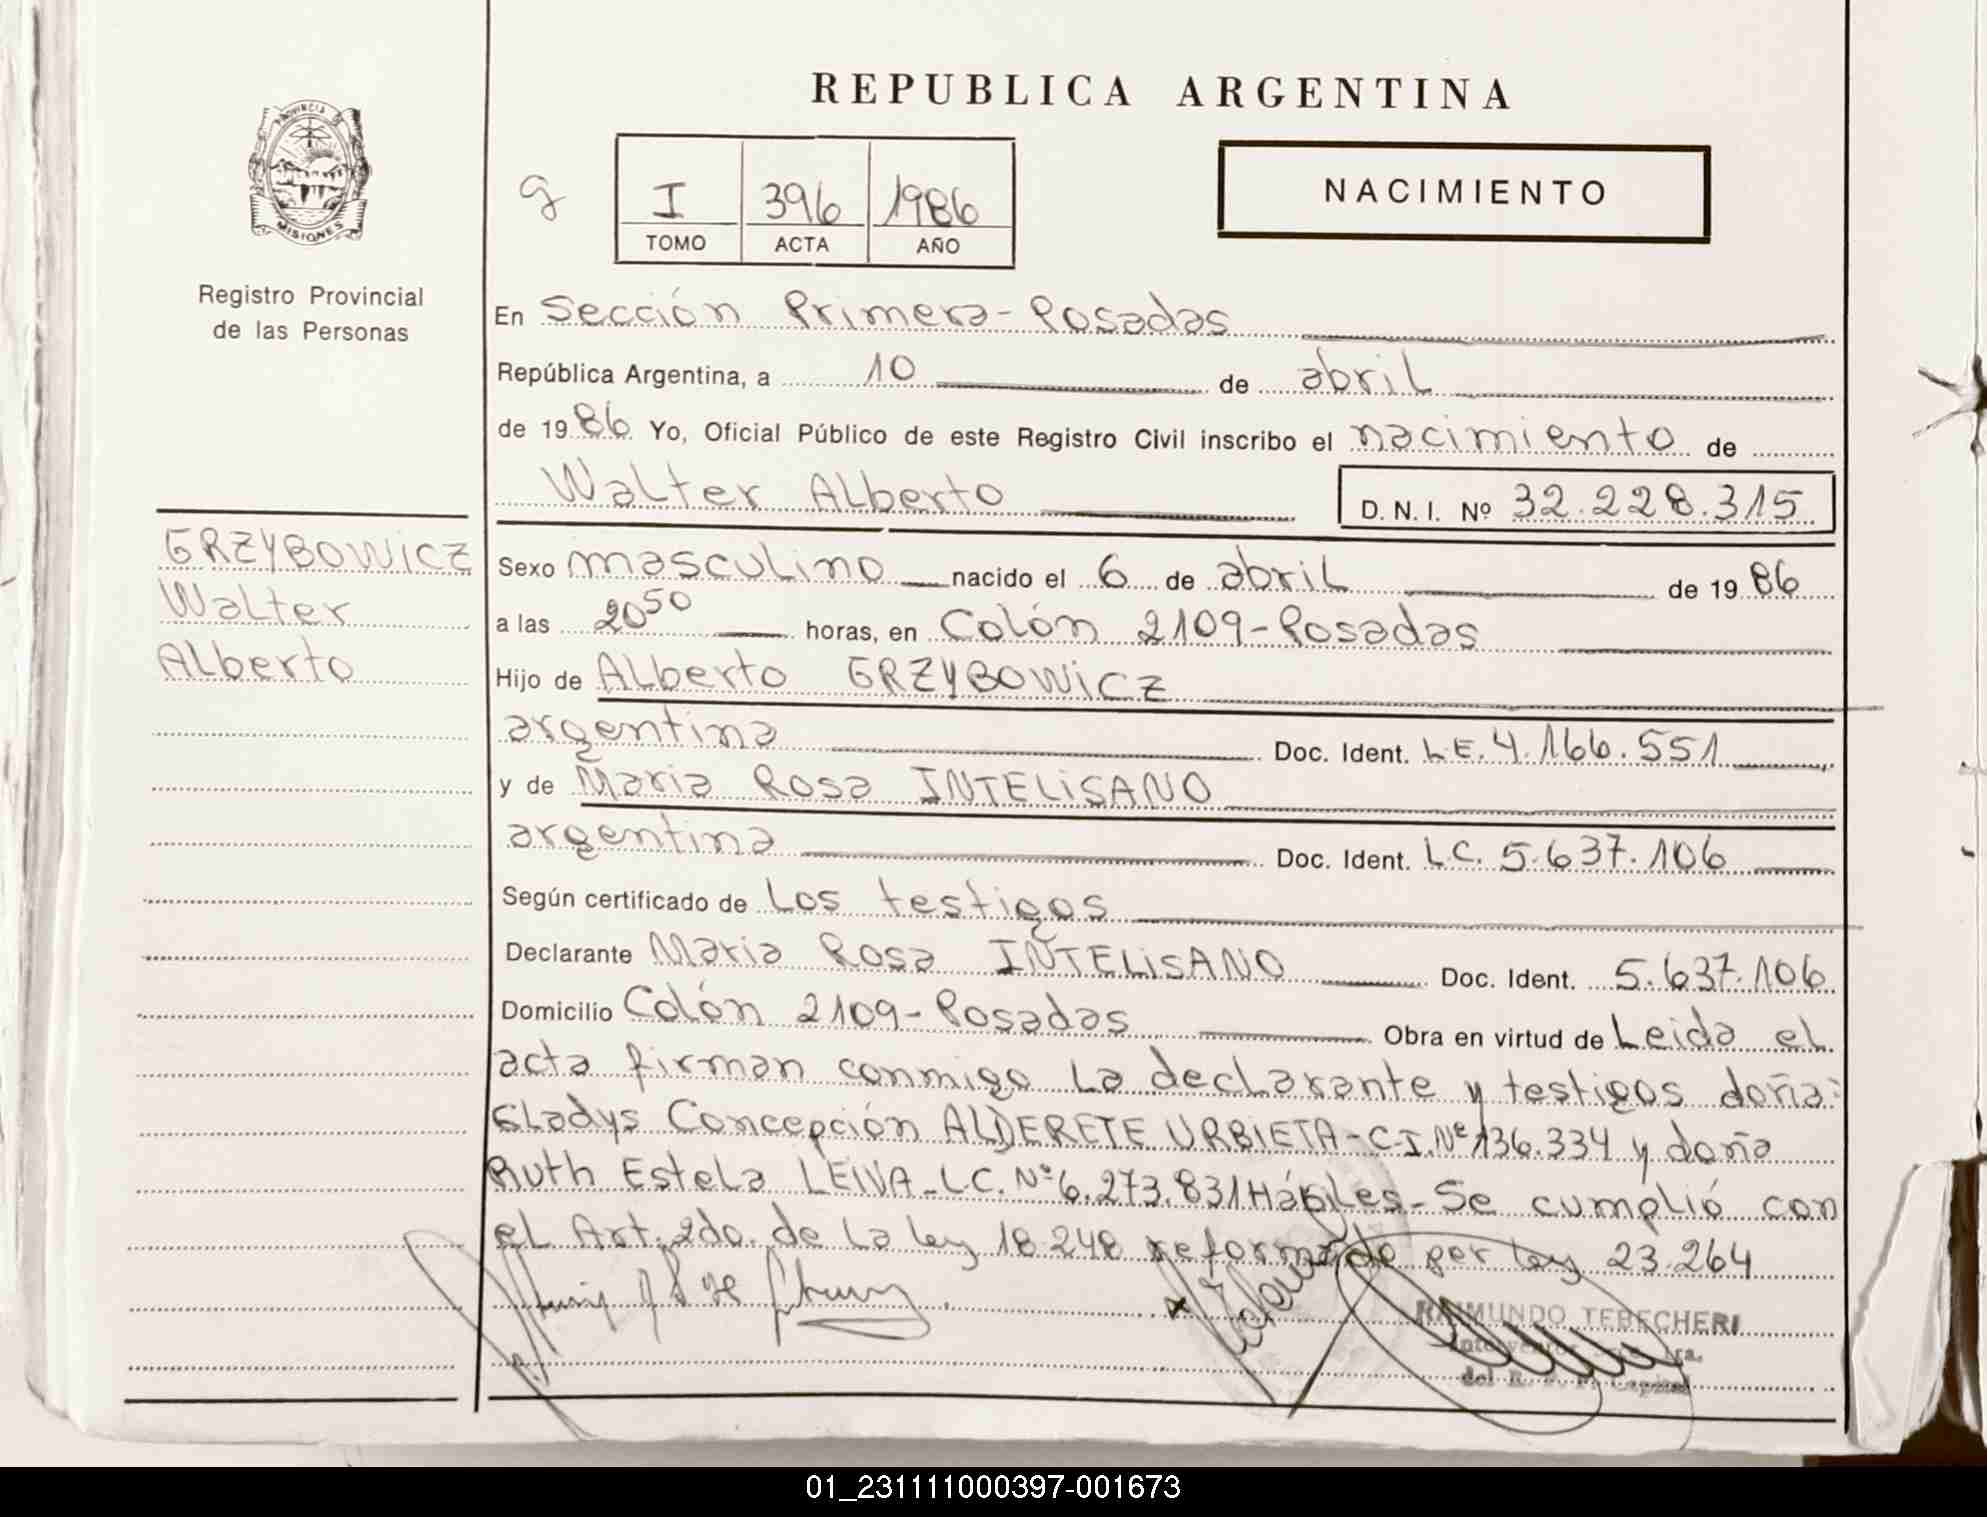 REPUBLICA ARGENTINA
PROVINCIA DE
MISIONES
Registro Provincial
de las Personas
g
I 396 1986
TOMO ACTA AÑO
NACIMIENTO
En Sección Primera-Posadas
República Argentina, a 10 de abril
de 1986 Yo, Oficial Público de este Registro Civil inscribo el nacimiento de
Walter Alberto
D. N. I. Nº 32.228.315
GRZYBOWICZ
Walter
Alberto
Sexo masculino nacido el 6 de abril de 1986
a las 20⁵⁰ horas, en Colón 2109-Posadas
Hijo de Alberto GRZYBOWICZ
argentina Doc. Ident. L.E. 4.166.551
y de Maria Rosa INTELISANO
argentina Doc. Ident. L.C. 5.637.106
Según certificado de Los testigos
Declarante Maria Rosa INTELISANO Doc. Ident. 5.637.106
Domicilio Colón 2109-Posadas Obra en virtud de Leida el
acta firman conmigo La declarante y testigos doña:
Gladys Concepción ALDERETE URBIETA-C.I.Nº 136.334 y doña
Ruth Estela LEIVA-L.C.Nº 6.273.831 Hábiles-Se cumplió con
el Art. 2do. de La ley 18.248 reformado por ley 23.264
RAIMUNDO TERECHERI
del R. P. P. Capital
01_231111000397-001673